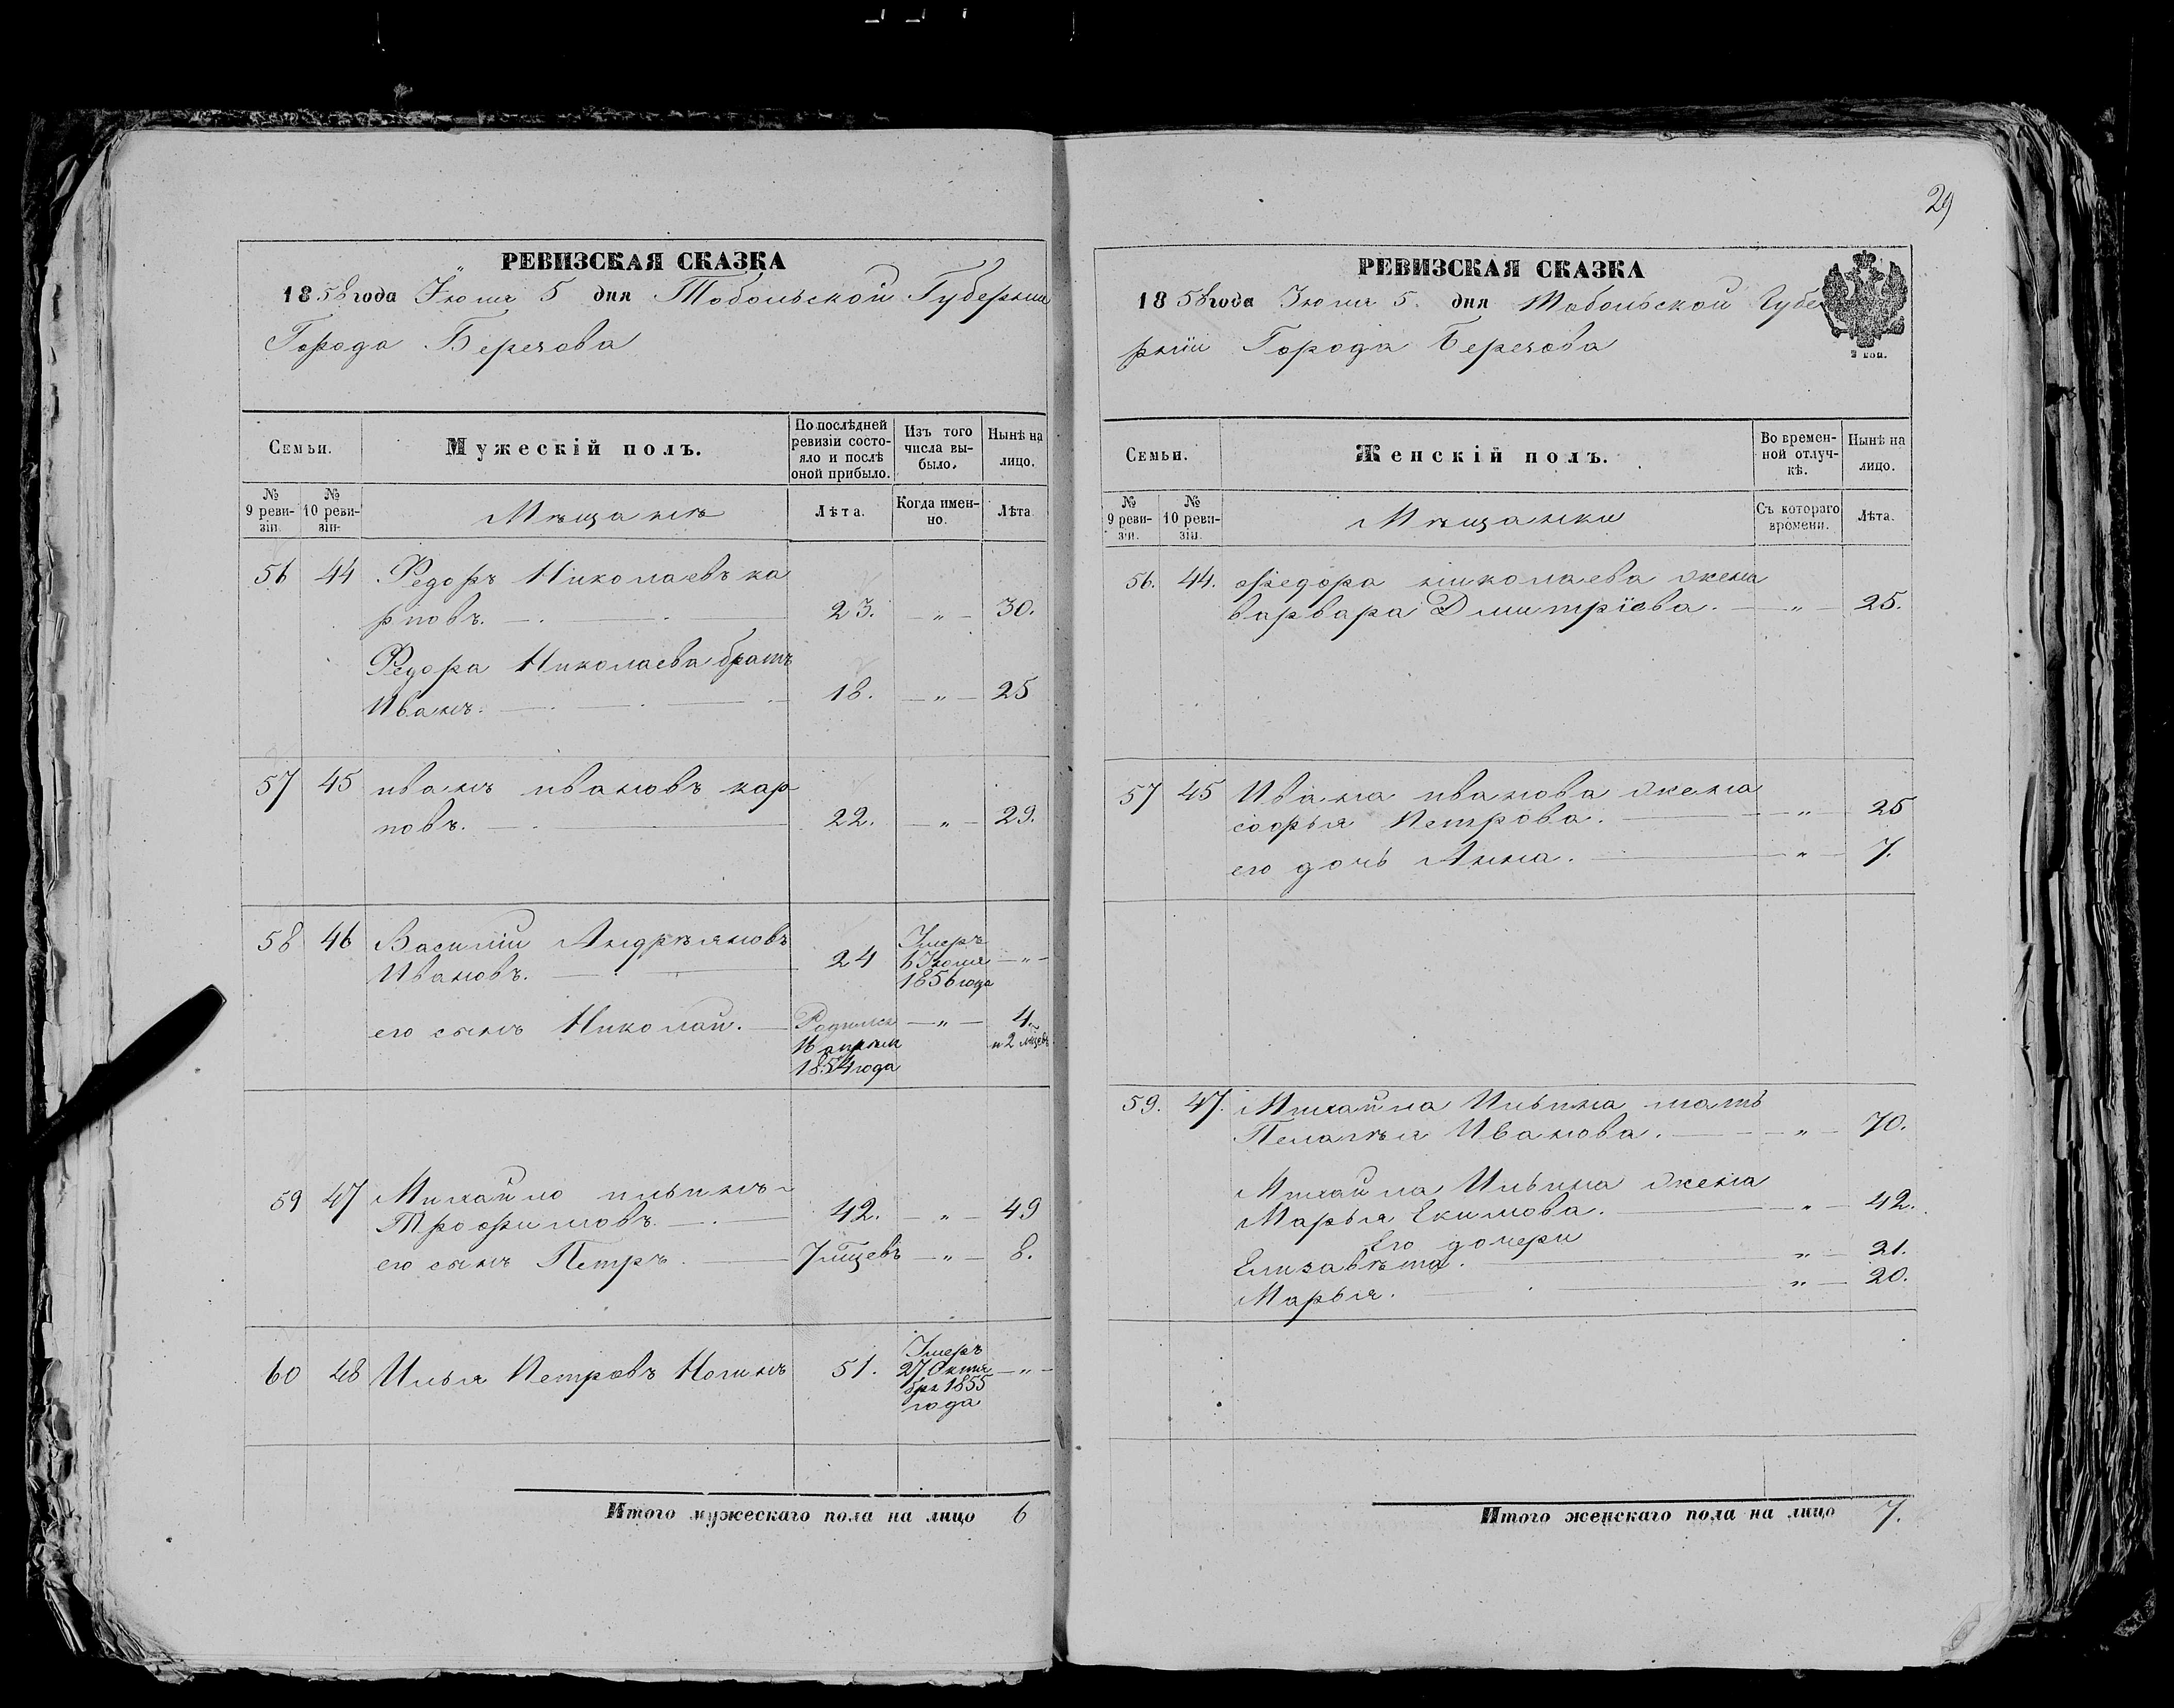 29
РЕВИЗСКАЯ СКАЗКА
1858 года Іюня 5 дня Тобольской Губерніи
Города Березова
Семьи.
Мужескій полъ.
По послѣдней ревизіи состо-
яло и послѣ
оной прибыло.
Изъ того
числа вы-
было.
Нынѣ на
лицо.
№
9 реви-
зіи.
№
10 реви-
зіи.
Мѣщане
Лѣта.
Когда имен-
но.
Лѣта
56 44 Федоръ Николаевъ ка
рповъ. 23. „ 30.
Федора Николаева братъ
Иванъ. 18. „ 25
57 45 иванъ ивановъ кар
повъ. 22. „ 29.
58 46 Василій Андрѣяновъ
Ивановъ. 24 Умеръ 6 Іюня 1856 года „
его сынъ Николай. Родился 16 апреля 1854 года „ 4. и 2 мѣсев.
59 47 Михайло ильинъ
Трофимовъ. 42. „ 49
его сынъ Петръ. 7 мѣцевъ „ 8.
60 48 Илья Петровъ Ногинъ 51. Умеръ 27 Октя бря 1855 года „
Итого мужескаго пола на лицо 6
РЕВИЗСКАЯ СКАЗКА
1858 года Іюня 5. дня Тобольской Губе
рніи Города Березова
2 коп.
Семьи.
Женскій полъ.
Во времен-
ной отлуч-
кѣ.
Нынѣ на
лицо.
№
9 реви-
зіи.
№
10 реви-
зіи.
Мѣщанки
Съ котораго
времени.
Лѣта.
56. 44. Федора николаева жена
варвара Дмитріева. „ 25.
57 45 Ивана иванова жена
софья Петрова. „ 25
его дочь Анна. „ 7.
59. 47. Михайла Ильина мать
Пелагѣя Иванова. „ 70.
Михайла Ильина жена
Марья Екимова. „ 42.
Его дочери
Елизавѣта. „ 21.
Марья. „ 20.
Итого женскаго пола на лицо 7.